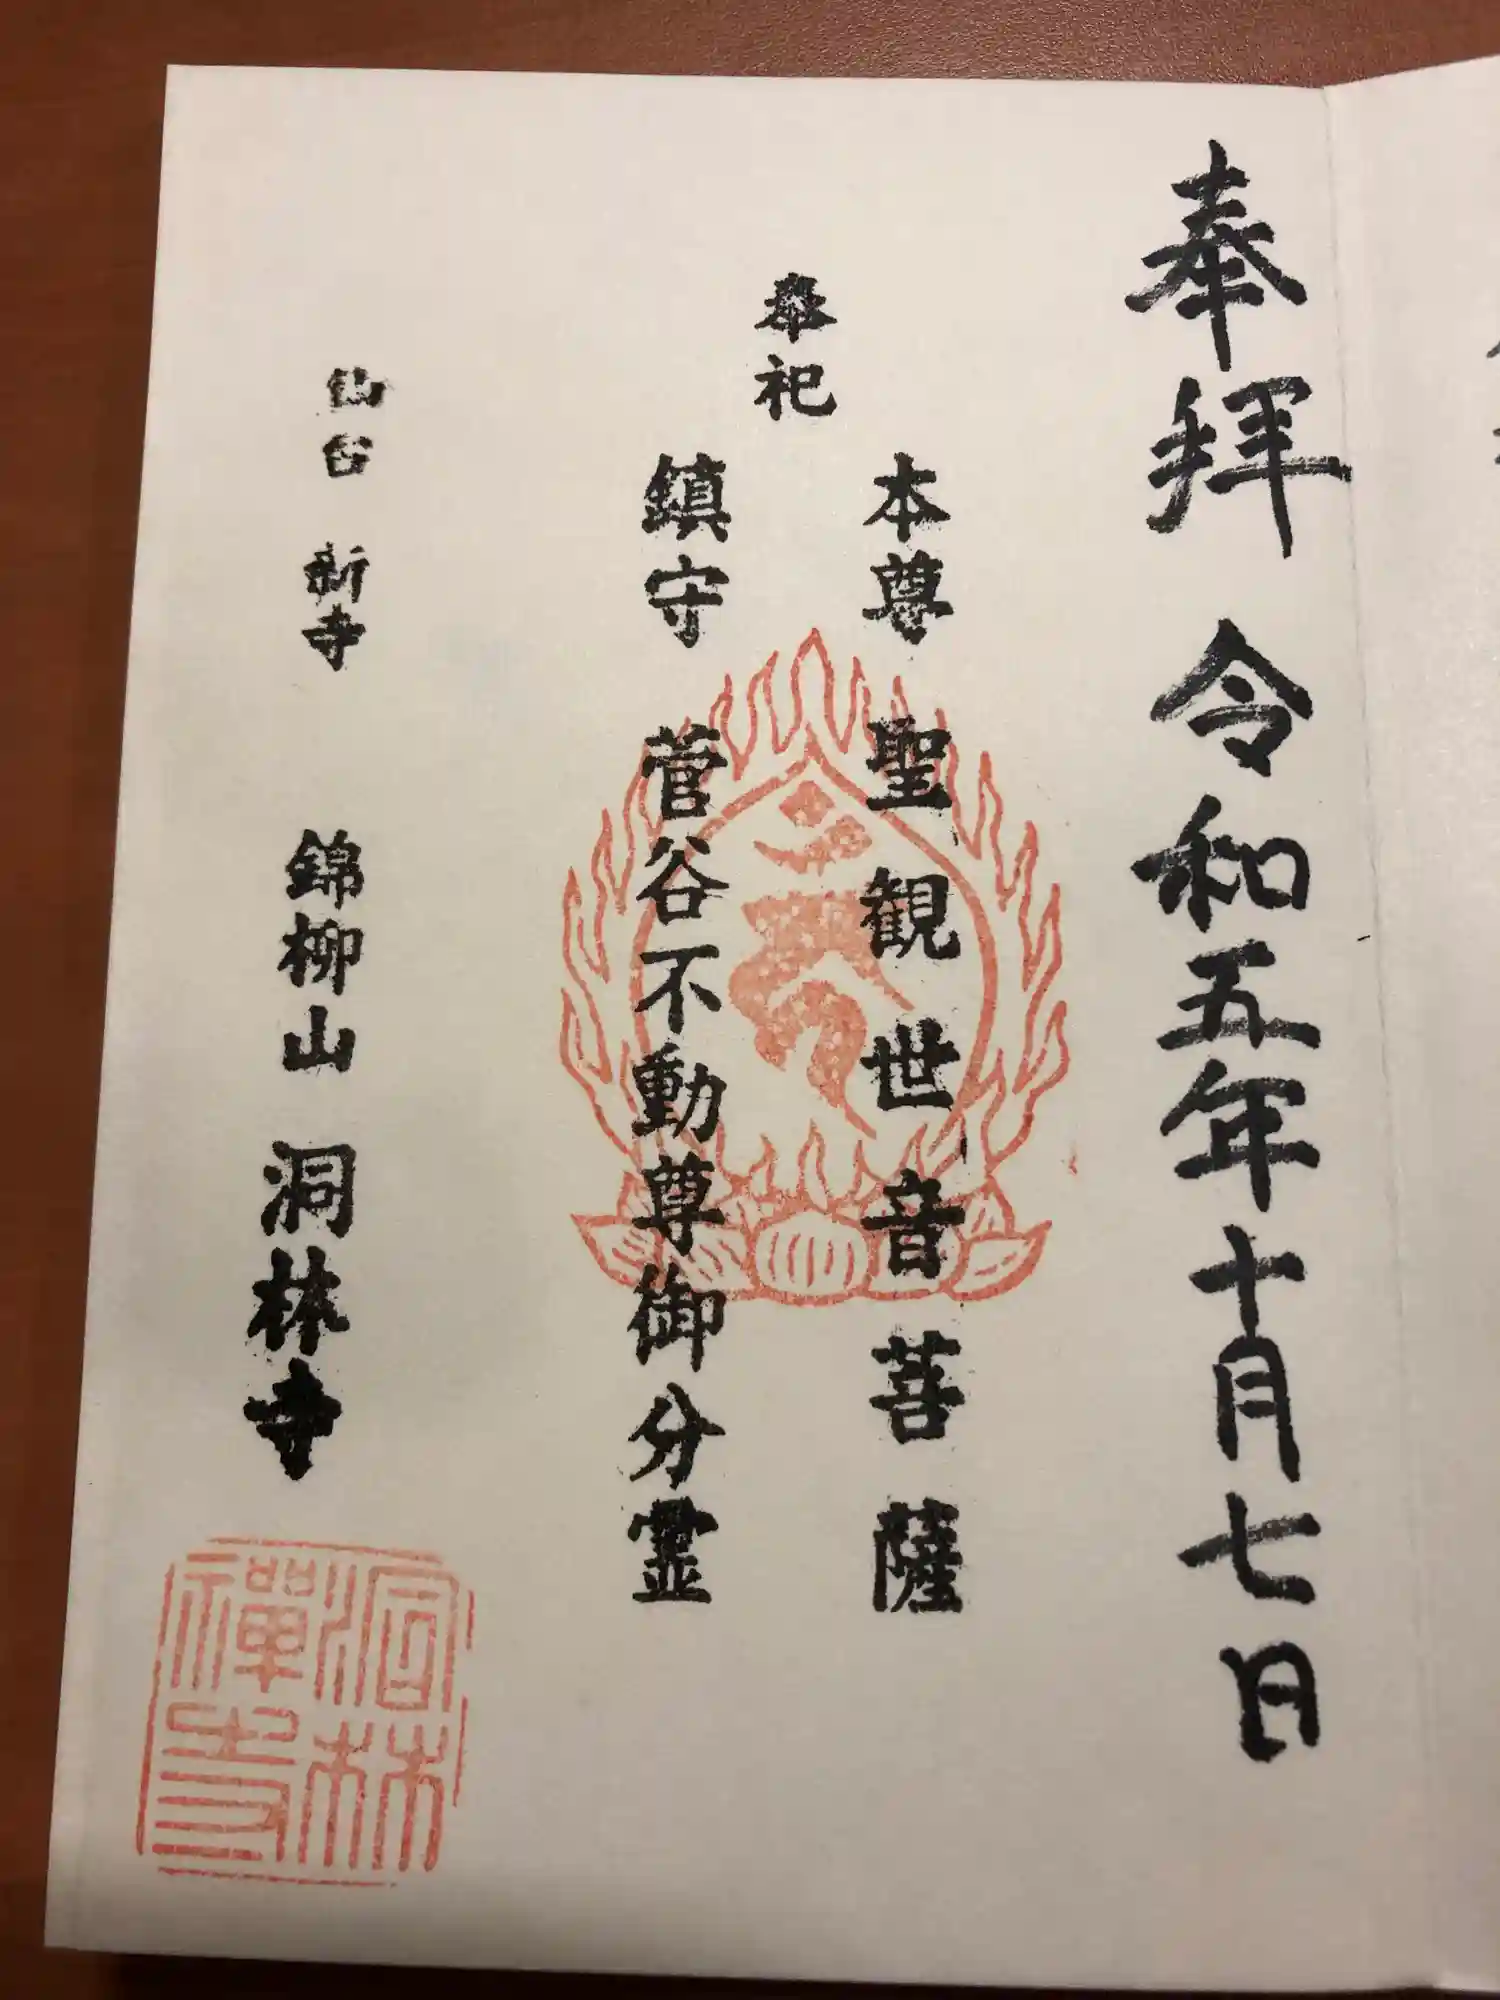 奉拝 令和五年十月七日
奉祀
本尊 聖観世音菩薩
鎮守 菅谷不動尊御分霊
仙台 新寺 錦柳山 洞林寺
洞林
禅寺